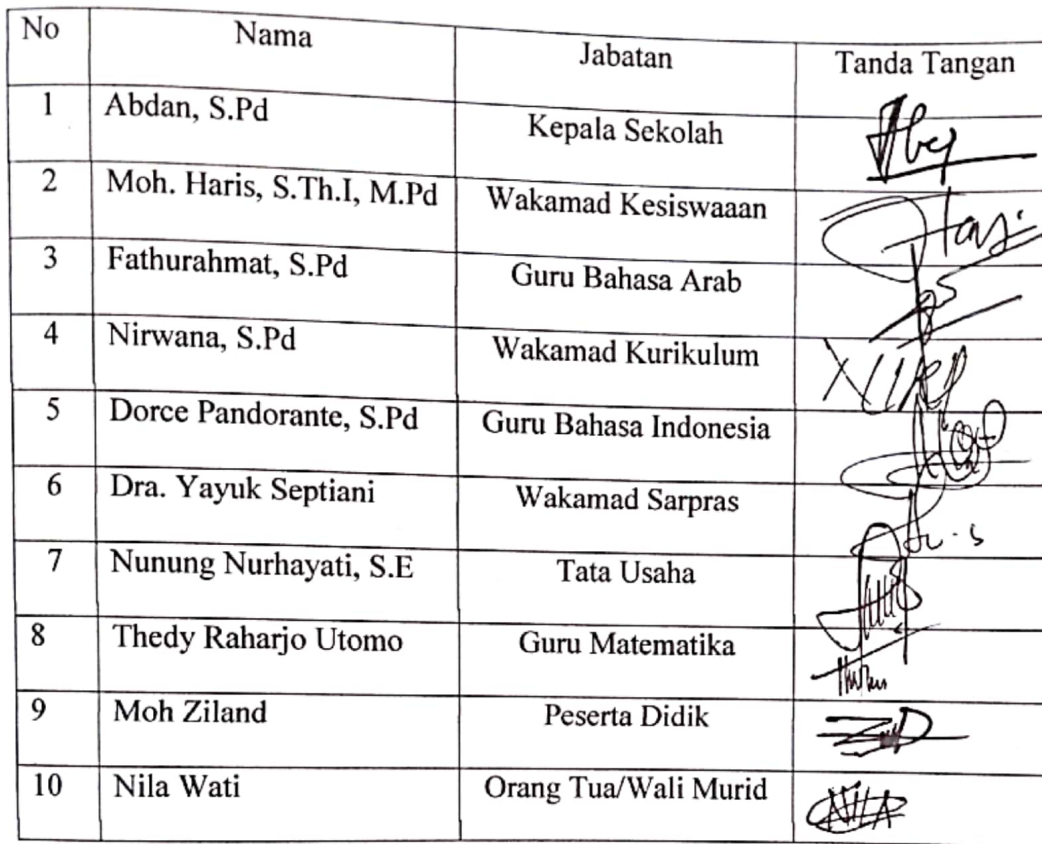 No Nama Jabatan Tanda Tangan
1 Abdan, S.Pd Kepala Sekolah
2 Moh. Haris, S.Th.I, M.Pd Wakamad Kesiswaaan
3 Fathurahmat, S.Pd Guru Bahasa Arab
4 Nirwana, S.Pd Wakamad Kurikulum
5 Dorce Pandorante, S.Pd Guru Bahasa Indonesia
6 Dra. Yayuk Septiani Wakamad Sarpras
7 Nunung Nurhayati, S.E Tata Usaha
8 Thedy Raharjo Utomo Guru Matematika
9 Moh Ziland Peserta Didik
10 Nila Wati Orang Tua/Wali Murid